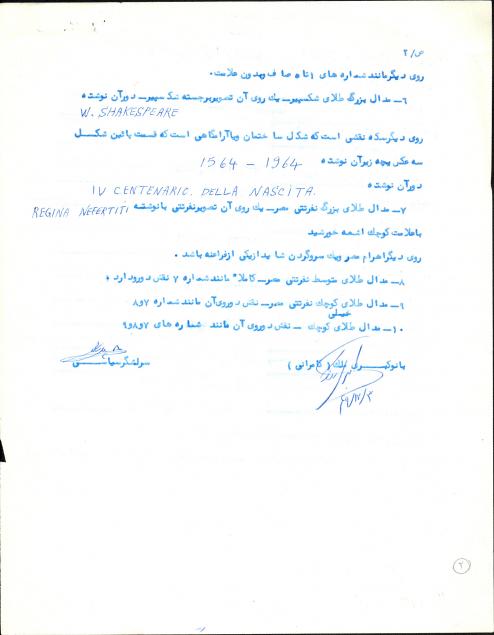 ص/ ۲
روی دیگرمانند شماره های ۱ تا ۵ صاف وبدون علامت.
٦ــ مدال بزرگ طلای شکسپیرــ یك روی آن تصویربرجسته شکسپیرــ دورآن نوشته
W. SHAKESPEARE
روی دیگرسکه نقشی است که شکل ساختمان ویاآرامگاهی است که قسمت پائین شکـــل
سه عکس بچه زیرآن نوشته 1564 – 1964
دورآن نوشته
IV CENTENARIC. DELLA NASCITA.
۷ــ مدال طلای بزرگ نفرتتی مصرــ یك روی آن تصویرنفرتتی بانوشتــه REGINA NEFERTITI
باعلامت کوچك اشعه خورشید
روی دیگراهرام مصر ویك سروگردن شاید ازیکی ازفراعنه باشد.
۸ــ مدال طلای متوسط نفرتتی مصرــ کاملا" مانند شماره ۷ نقش دورودارد.
۹ــ مدال طلای کوچك نفرتتی مصرــ نقش دوروی آن مانند شماره ۷و۸
۱۰ــ مدال طلای خیلی کوچك ــ نقش دوروی آن مانند شماره های ۷و۸و۹
بانوکبـــــری ( کامرانی )
سرلشگر
۲